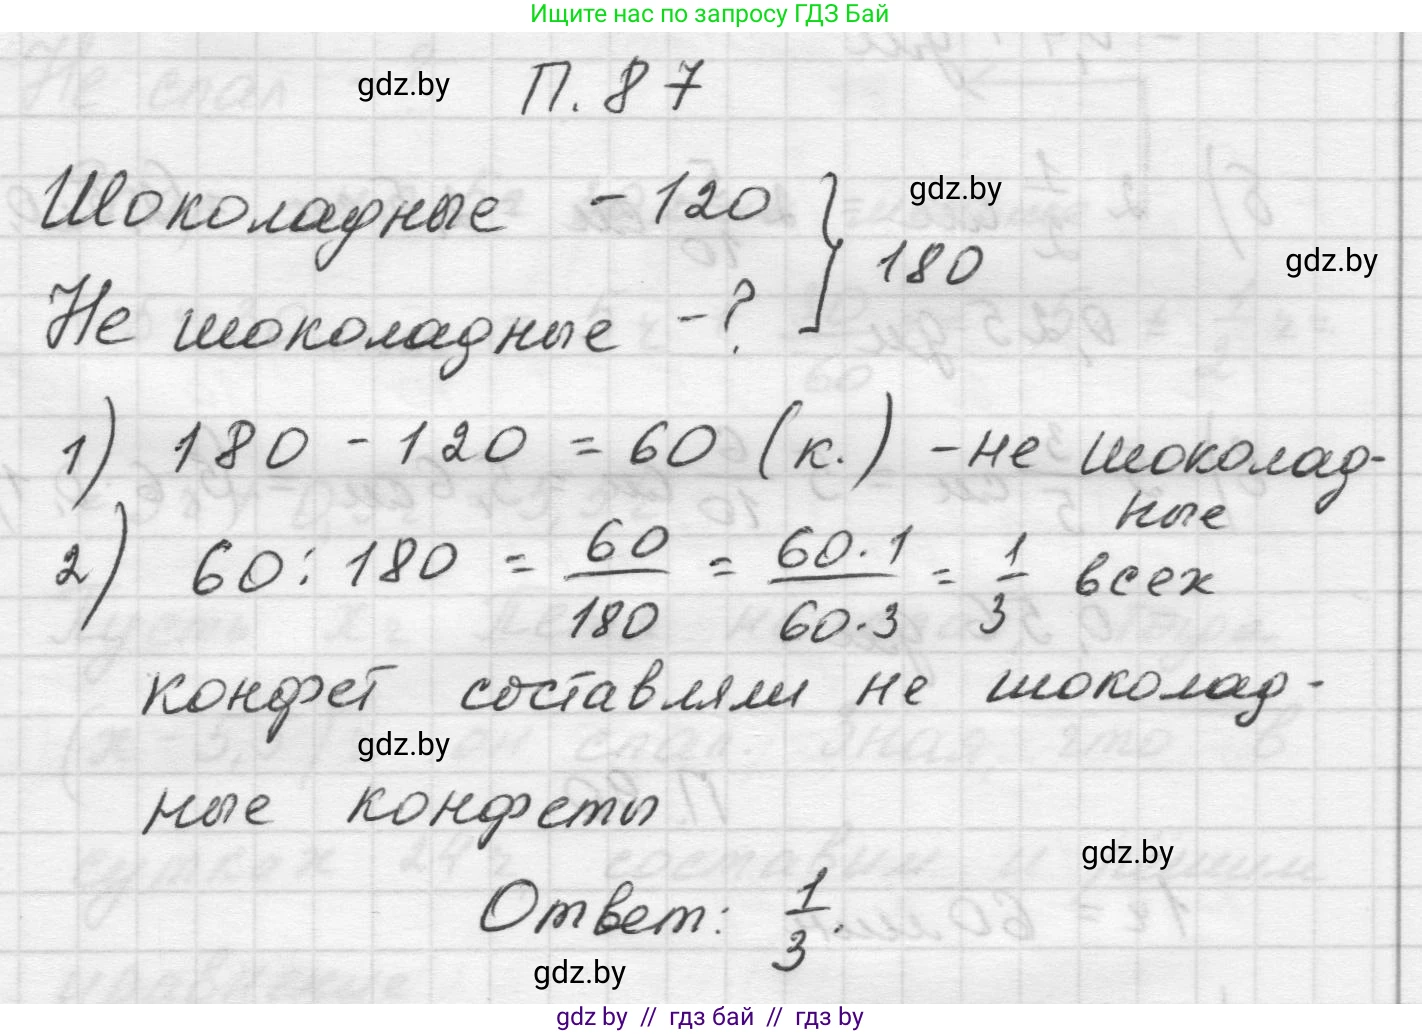 Ищите нас по запросу ГДЗ Бай
gdz.by
П. 87
Шоколадные - 120
gdz.by
180
gdz.by
Не шоколадные - ?
1) 180 - 120 = 60 (к.) - не шоколад-
ные
2) 60 : 180 = 60/180 = 60·1/60·3 = 1/3 всех
конфет составляли не шоколад-
gdz.by
ные конфеты
gdz.by
Ответ: 1/3.
gdz.by
gdz.by // гдз бай // гдз by